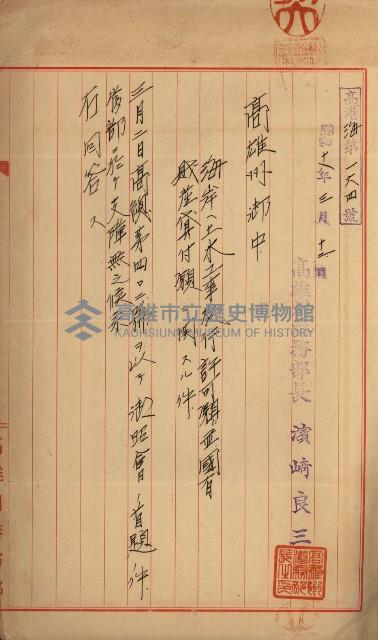 高港海第一六四號
昭和十八年三月十二日
高雄港務部長 濱崎良三
高雄州御中
海岸ノ土木工事施行許可願並國有
財産貸付願ニ關スル件
三月二日高額第四〇號ヲ以テ御照會ノ首題ノ件
當部ニ於テ支障無之候条
右回答ス
高雄市立歷史博物館
KAOHSIUNG MUSEUM OF HISTORY